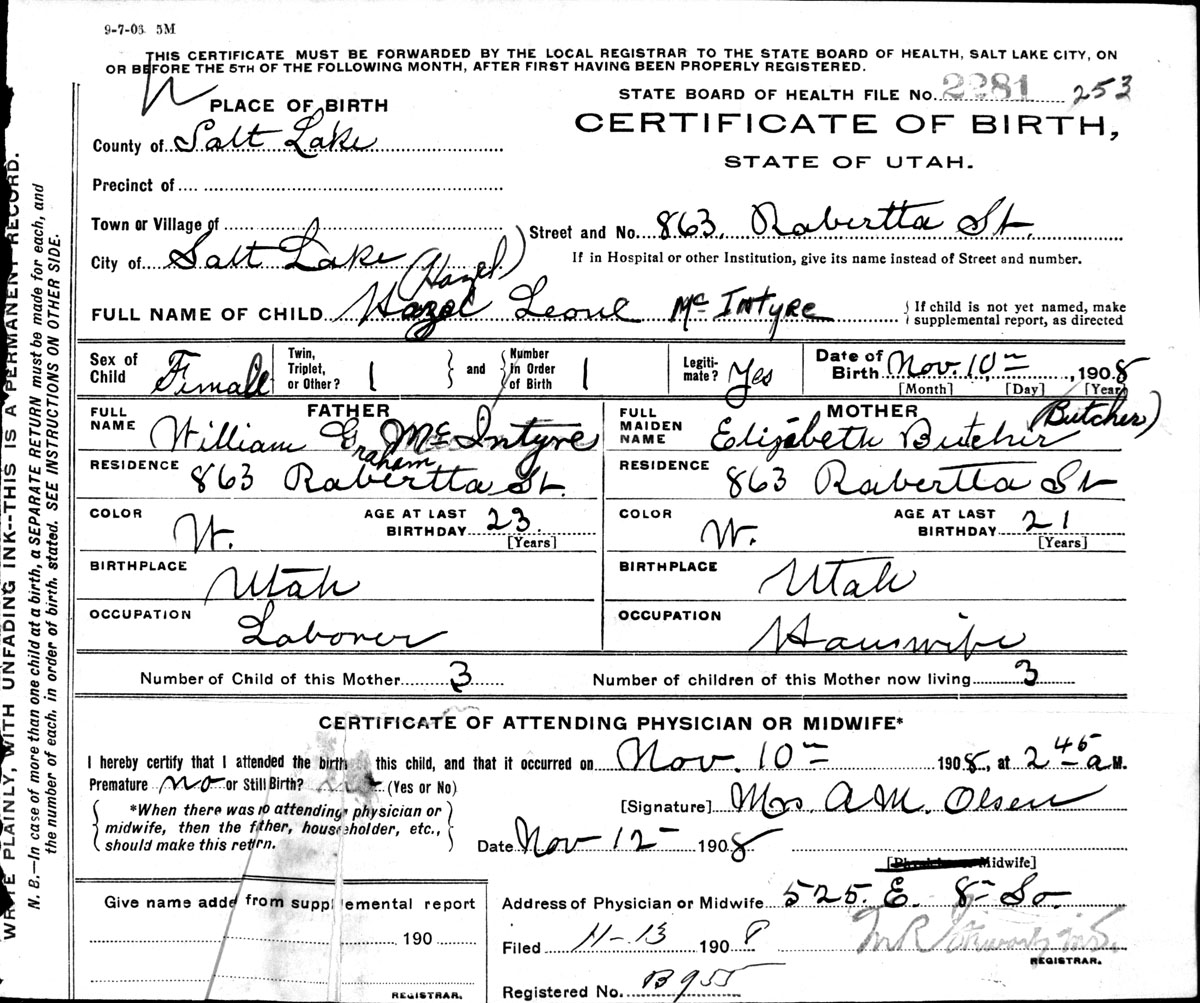 9-7-08 5M
THIS CERTIFICATE MUST BE FORWARDED BY THE LOCAL REGISTRAR TO THE STATE BOARD OF HEALTH, SALT LAKE CITY, ON
OR BEFORE THE 5TH OF THE FOLLOWING MONTH, AFTER FIRST HAVING BEEN PROPERLY REGISTERED.
STATE BOARD OF HEALTH FILE No. 2281 253
PLACE OF BIRTH
CERTIFICATE OF BIRTH,
STATE OF UTAH.
County of Salt Lake
Precinct of
Town or Village of
Street and No. 863, Rabertta St.
City of Salt Lake
If in Hospital or other Institution, give its name instead of Street and number.
(Hazel)
FULL NAME OF CHILD Hazel Leone McIntyre
If child is not yet named, make
supplemental report, as directed
Sex of Child Female
Twin, Triplet, or Other? 1 and Number In Order of Birth 1
Legiti-mate? Yes
Date of Birth Nov. 10, 1908
[Month] [Day] [Year]
FATHER
FULL NAME William Graham McIntyre
RESIDENCE 863 Rabertta St.
COLOR W. AGE AT LAST BIRTHDAY 23. [Years]
BIRTHPLACE Utah
OCCUPATION Laborer
MOTHER
FULL MAIDEN NAME Elizabeth Butcher (Butcher)
RESIDENCE 863 Rabertta St
COLOR W. AGE AT LAST BIRTHDAY 21 [Years]
BIRTHPLACE Utah
OCCUPATION Hauswife
Number of Child of this Mother 3 Number of children of this Mother now living 3
CERTIFICATE OF ATTENDING PHYSICIAN OR MIDWIFE*
I hereby certify that I attended the birth this child, and that it occurred on Nov. 10 1908, at 2 45 a M.
Premature no or Still Birth? (Yes or No)
*When there was no attending physician or
midwife, then the father, householder, etc.,
should make this return.
[Signature] Mrs A.M. Olsen
Date Nov 12 1908
[Physician or Midwife]
Give name added from supplemental report
190
REGISTRAR.
Address of Physician or Midwife 525. E. 8 So.
Filed 11-13 1908
REGISTRAR.
Registered No. B955
WRITE PLAINLY, WITH UNFADING INK--THIS IS A PERMANENT RECORD.
N. B.—In case of more than one child at a birth, a SEPARATE RETURN must be made for each, and
the number of each, in order of birth, stated. SEE INSTRUCTIONS ON OTHER SIDE.